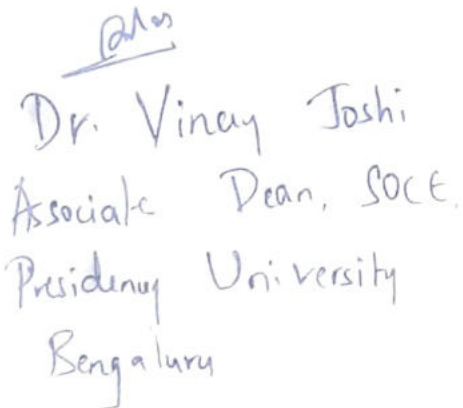 Dr. Vinay Joshi
Associate Dean, SOCE.
Presidency University
Bengaluru